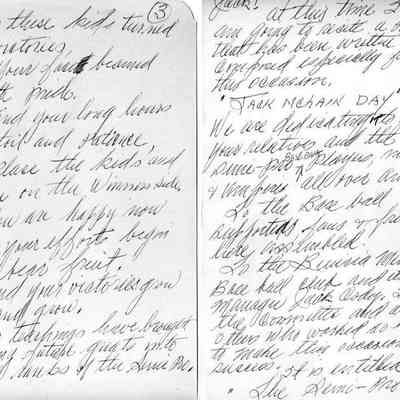 these kids turned
3
your face beamed
pride.
your long hours
and patience,
place the kids and
on the winners side.
are happy now
your efforts begin
bear fruit.
your victories grow
and grow.
teachings have brought
future greats into
ranks of the Semi Pro.
Jack!
at this time I
am going to recite a
that has been written
composed especially for
this occasion.
"JACK McLAIN DAY"
We are dedicating to
your relatives and the
semi-pro Players,
& umpires all over
To the Base ball
supporters, fans &
here assembled.
To the
Base ball club and
manager Jack
the Committee and
others who worked so
to make this occasion
success. It is entitled
"The Semi-Pro